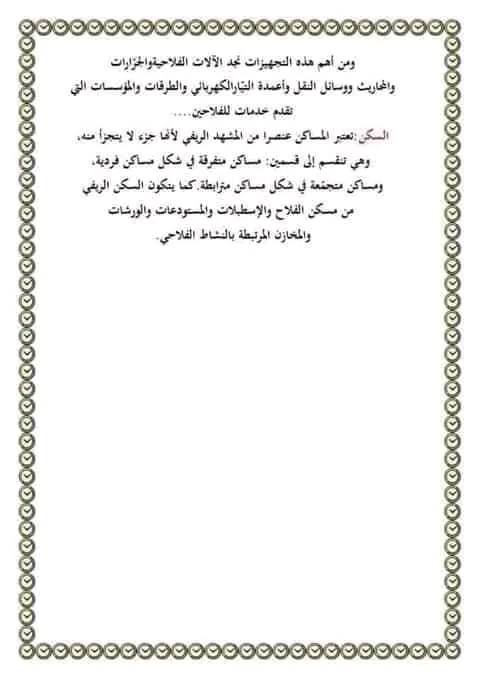 ومن أهم هذه التجهيزات نجد الآلات الفلاحيةوالجرّارات
والمحاريث ووسائل النقل وأعمدة التيّارالكهربائي والطرقات والمؤسسات التي
تقدم خدمات للفلاحين....
السكن:تعتبر المساكن عنصرا من المشهد الريفي لأنها جزء لا يتجزأ منه،
وهي تنقسم إلى قسمين: مساكن متفرقة في شكل مساكن فردية،
ومساكن متجمّعة في شكل مساكن مترابطة.كما يتكون السكن الريفي
من مسكن الفلاح والإسطبلات والمستودعات والورشات
والمخازن المرتبطة بالنشاط الفلاحي.